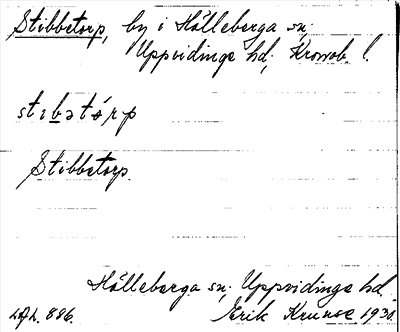 Stibbetorp, by i Hälleberga sn;
Uppvidinge hd; Kronob. l.
stɪbətórp
Stibbetorp.
Hälleberga sn; Uppvidinge hd.
Erik Kruuse 1930
LAL. 886.